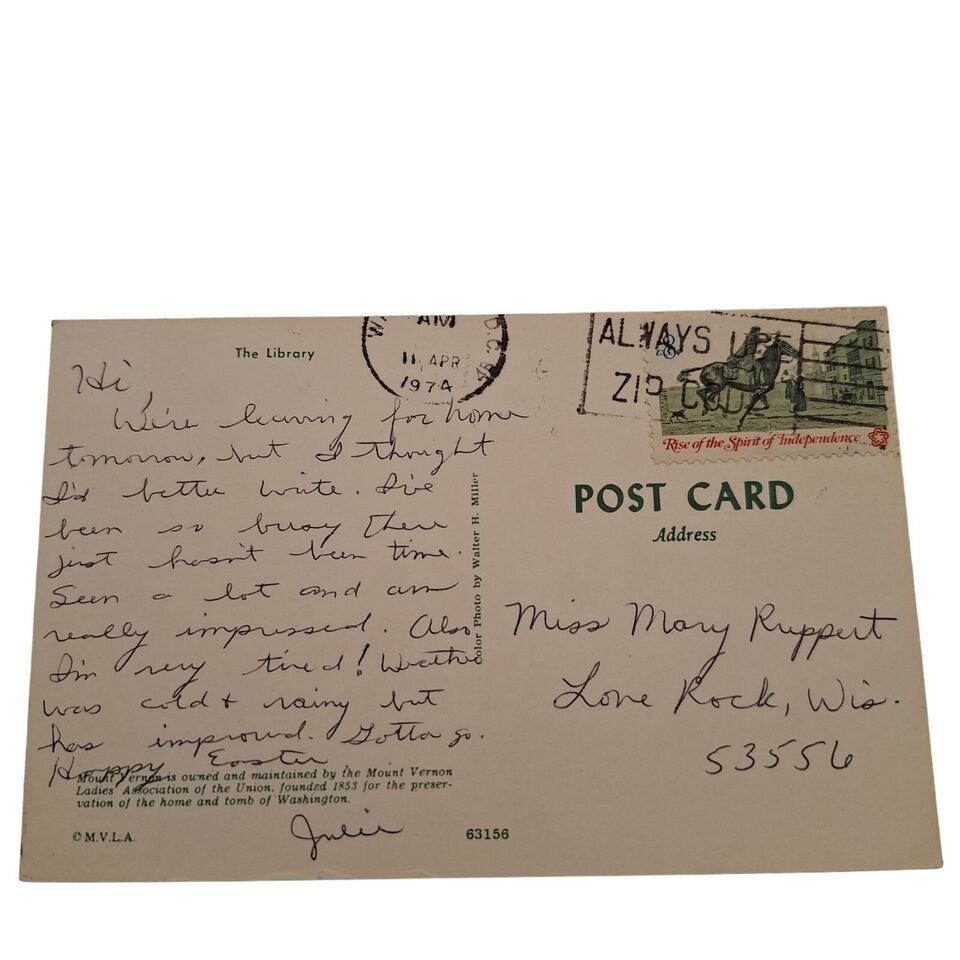 The Library
W
AM
D.C.
11 APR
1974
ALWAYS USE
ZIP CODE
8
US
Rise of the Spirit of Independence
Hi,
We're leaving for home
tomorrow, but I thought
I'd better write. I've
been so busy there
just hasn't been time.
Seen a lot and am
really impressed. Also
I'm very tired! Weather
was cold + rainy but
has improved. Gotta go.
Happy Easter
Julie
Mount Vernon is owned and maintained by the Mount Vernon
Ladies' Association of the Union, founded 1853 for the preser-
vation of the home and tomb of Washington.
© M.V.L.A.
63156
Color Photo by Walter H. Miller
POST CARD
Address
Miss Mary Ruppert
Lone Rock, Wis.
53556